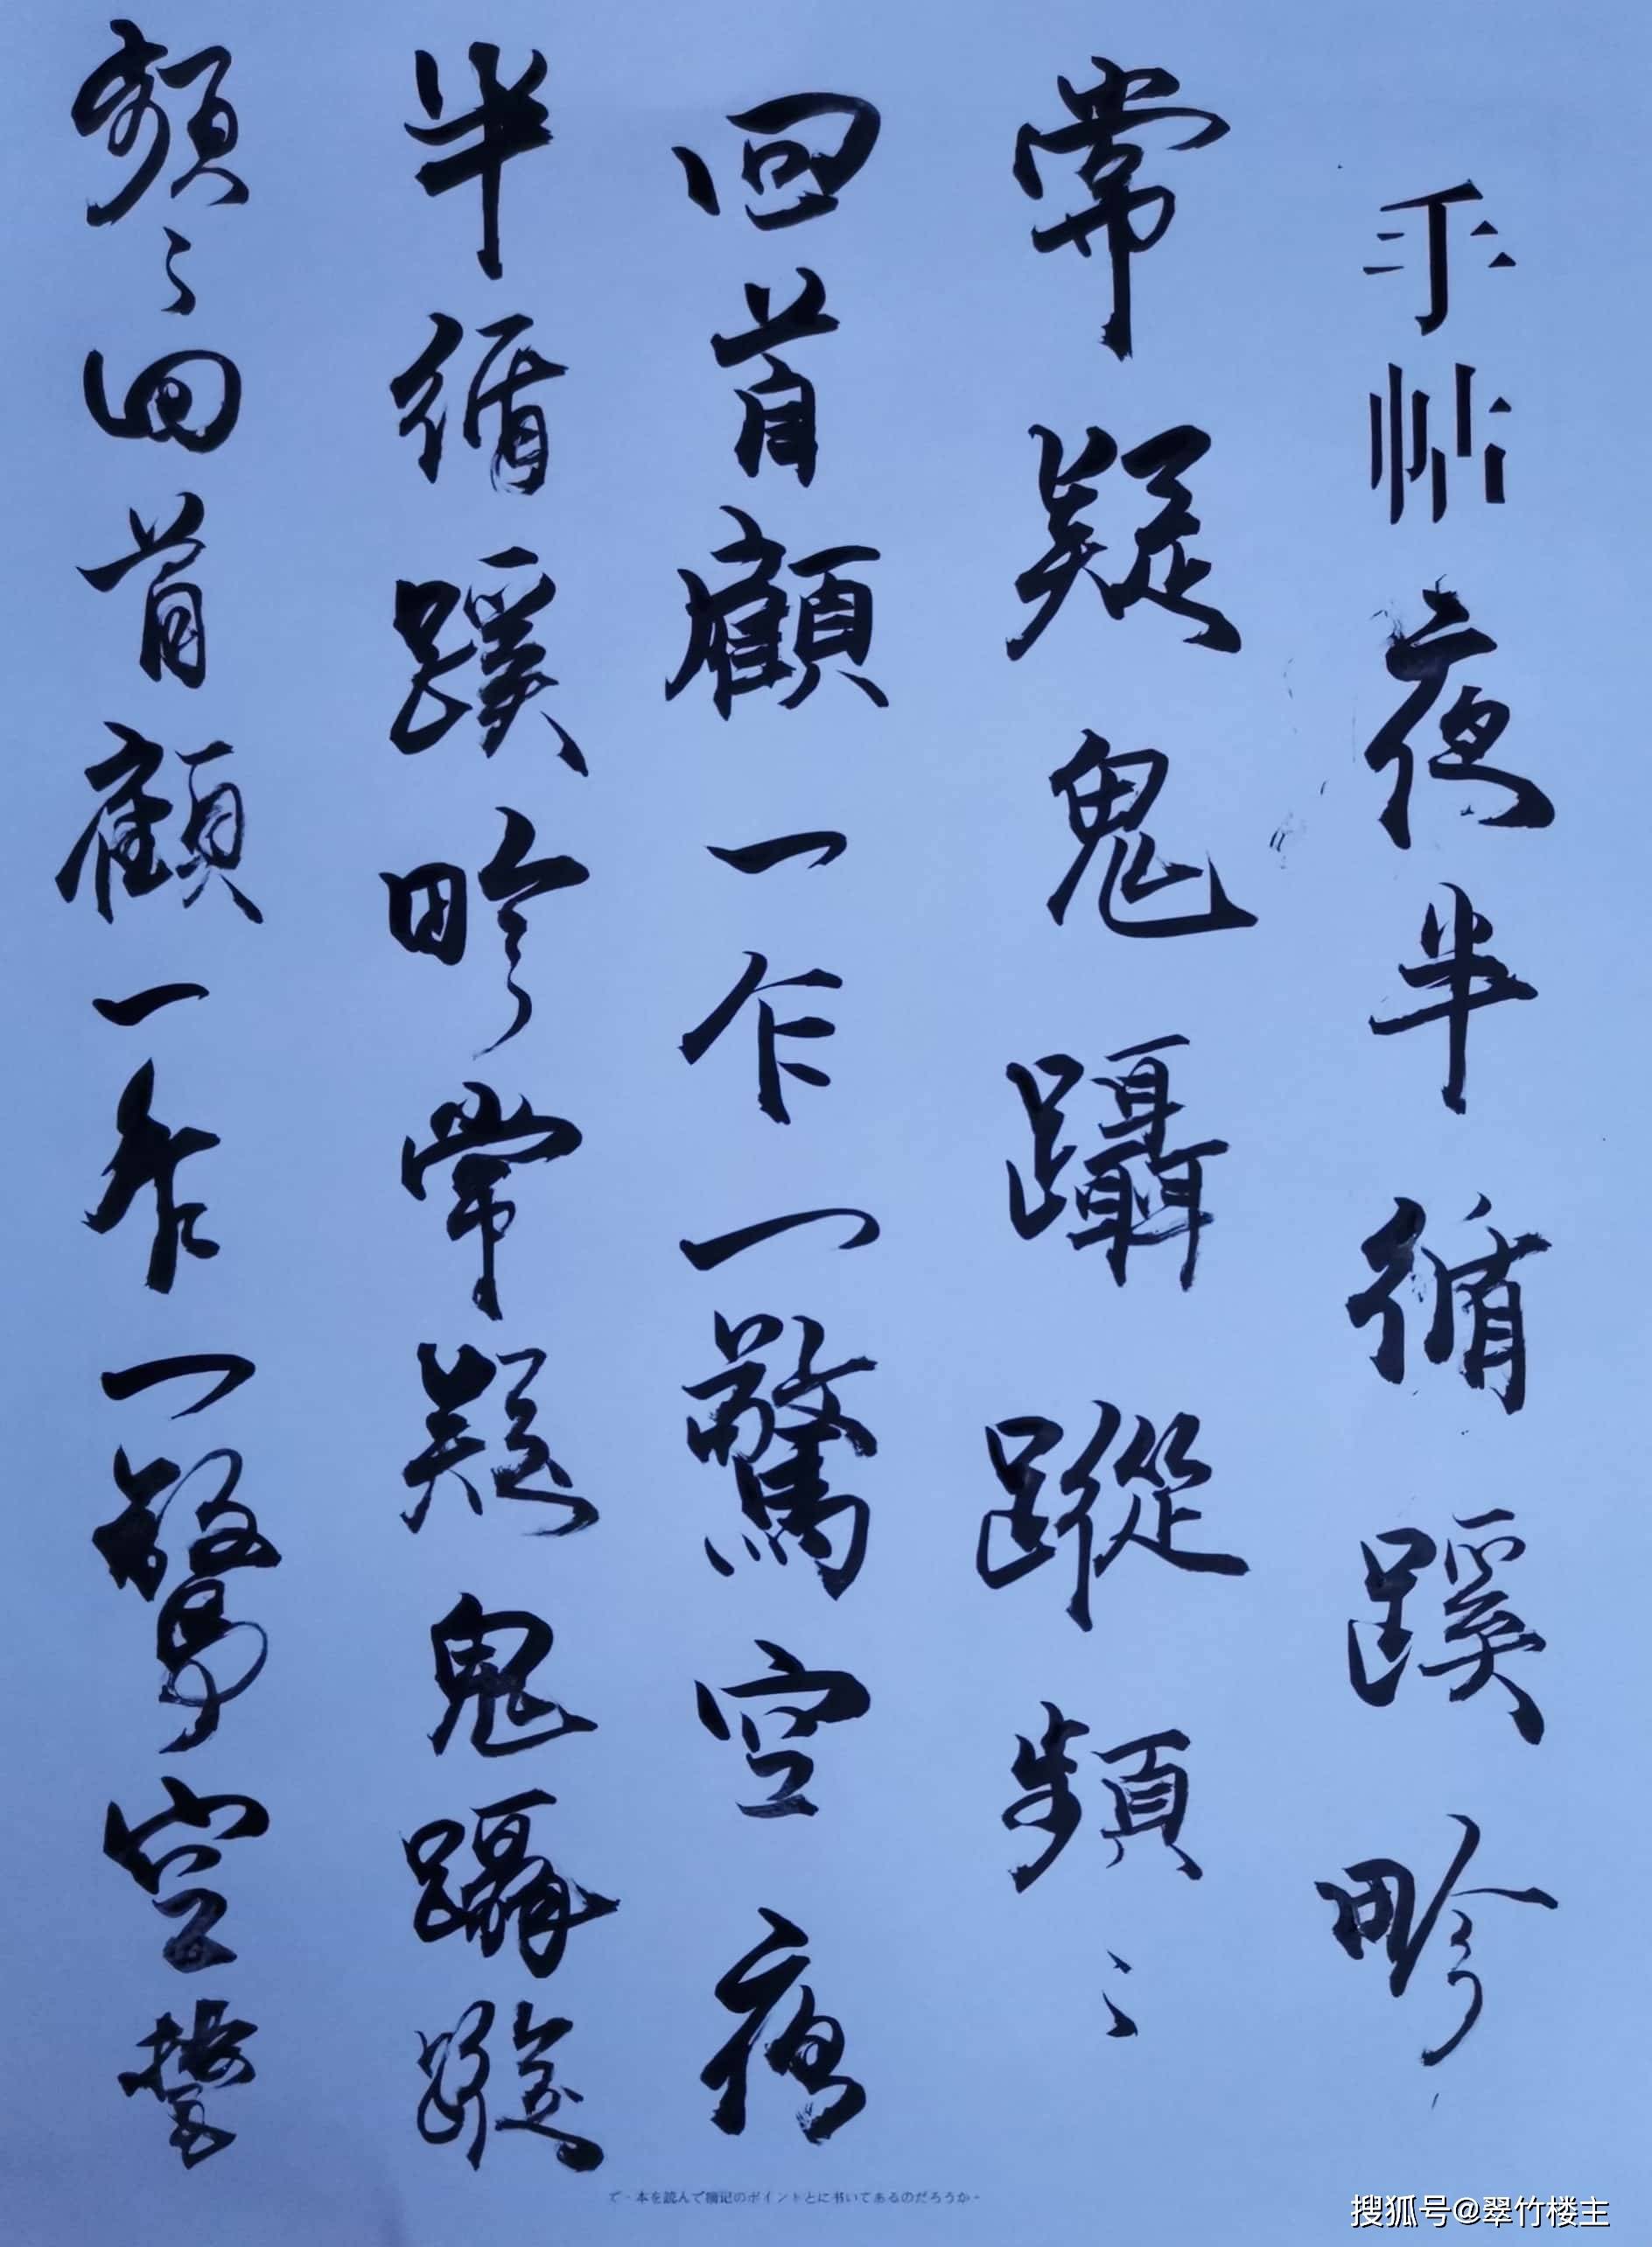 手帖夜半循蹊畛
常疑鬼躡蹤頻〻
回首顧一乍一驚空夜
半循蹊畛常疑鬼躡蹤
頻〻回首顧一乍一驚空
本を読んで暗記のポイントとに书いてあるのだろうか
搜狐号@翠竹楼主